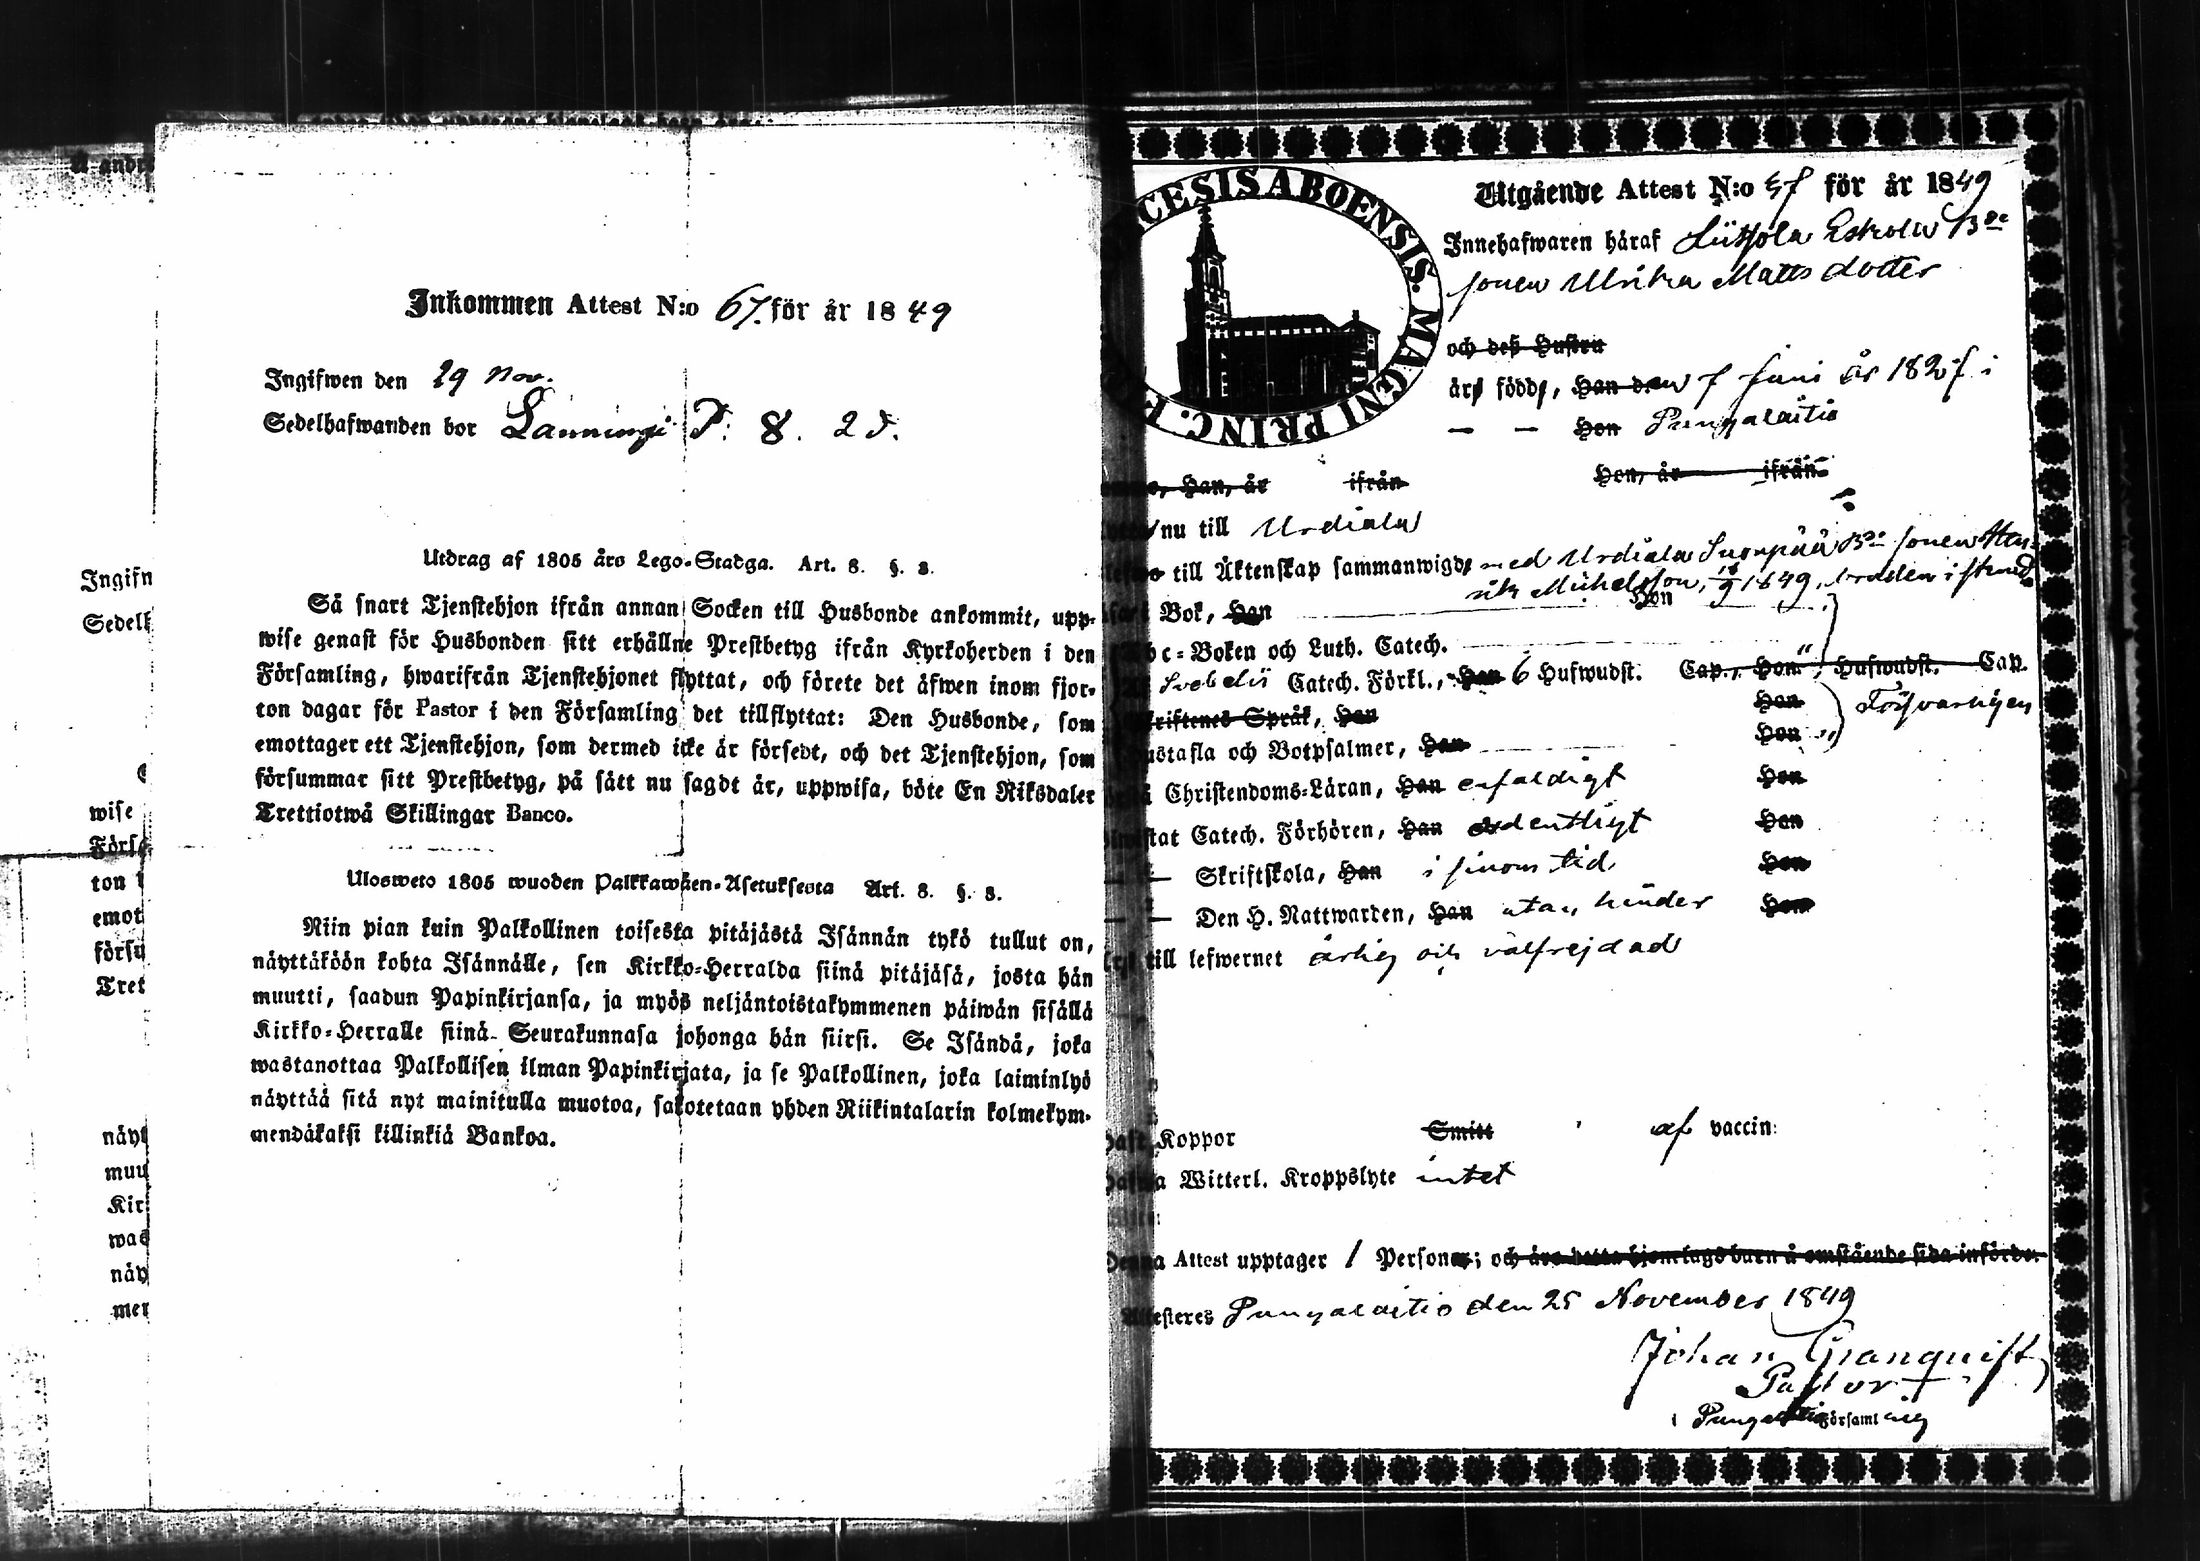 Inkommen Attest N:o 67. för år 1849
Ingifwen den 29 Nov.
Sedelhafwanden bor Lanningi P: 8. 2 d.
Utdrag af 1805 års Lego-Stadga. Art. 8. §. 3.
Så snart Tjenstehjon ifrån annan Socken till Husbonde ankommit, upp-
wise genast för Husbonden sitt erhållne Prestbetyg ifrån Kyrkoherden i den
Församling, hwarifrån Tjenstehjonet flyttat, och förete det äfwen inom fjor-
ton dagar för Pastor i den Församling det tillflyttat: Den Husbonde, som
emottager ett Tjenstehjon, som dermed icke är försedt, och det Tjenstehjon, som
försummar sitt Prestbetyg, på sätt nu sagdt är, uppwisa, böte En Riksdaler
Trettiotwå Skillingar Banco.
Ulosweto 1805 wuoden Palkkawäen-Asetuksesta Art. 8. §. 3.
Niin pian kuin Palkollinen toisesta pitäjästä Isännän tykö tullut on,
näyttäköön kohta Isännälle, sen Kirkko-Herralda siinä pitäjäsä, josta hän
muutti, saadun Papinkirjansa, ja myös neljäntoistakymmenen päiwän sisällä
Kirkko-Herralle siinä Seurakunnasa johonga hän siirsi. Se Isändä, joka
wastanottaa Palkollisen ilman Papinkirjata, ja se Palkollinen, joka laiminlyö
näyttää sitä nyt mainitulla muotoa, sakotetaan yhden Riikintalarin kolmekym-
mendäkaksi killinkiä Bankoa.
CESIS ABOENSIS. MAGNI PRINC. F
Utgående Attest N:o för år 1849
Innehafwaren häraf Eskola Bde
sonen Ulrika Matts dotter
och deß Hustru
är född, Han den 7 Juni år i
— — Hon Pungalaitio
Han, år ifrån Hon, år ifrån
nu till Urdiala
till Äktenskap sammanwigd med Urdiala Suonpää Bde sonen Hen-
rik Michelsson, 1849,
Bok, Han Hon
bc-Boken och Luth. Catech.
Svebelii Catech. Förkl., Han 6 Hufwudst. Cap., Hon Hufwudst. Cap.
Skriftenes Språk, Han Hon Försvarligen
Hustafla och Botpsalmer, Han Hon
Christendoms-Läran, Han enfaldigt Hon
Catech. Förhören, Han ordentligt Hon
— Skriftskola, Han i sinom tid Hon
— Den H. Nattwarden, Han utan hinder Hon
till lefwernet ärlig och välfrejdad
Koppor Smitt af vaccin:
Witterl. Kroppslyte intet
Denna Attest upptager 1 Person; och äro detta hjonelags barn å omstående sida införde.
Attesteres Pungalaitio den 25 November 1849
Johan Granquist
Pastor
i Pungalaitio Församling